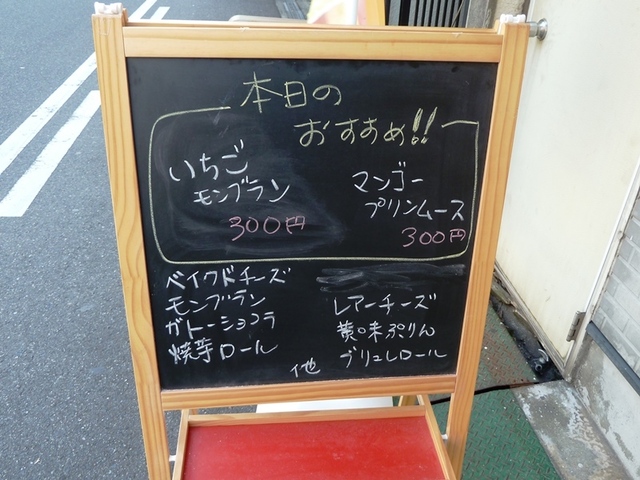 本日の
おすすめ!!
いちご
モンブラン
300円
マンゴー
プリンムース
300円
ベイクドチーズ
モンブラン
ガトーショコラ
焼芋ロール
レアーチーズ
黄味ぷりん
ブリュレロール
他